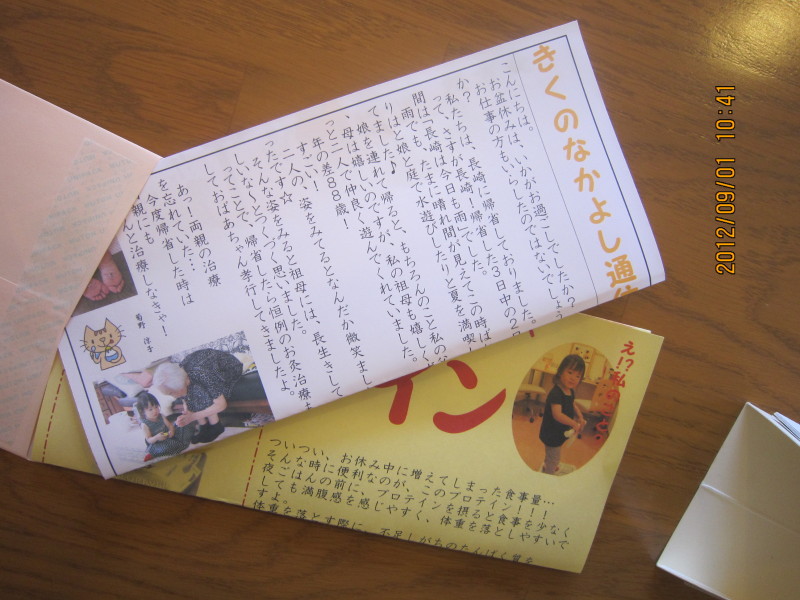 きくのなかよし通信
こんにちは。いかがお過ごしでしたか?
お盆休みは、
お仕事の方もいらしたのではないでしょう
か?
私たちは、長崎に帰省しておりました。
って、さすが長崎!帰省した3日中の2
間は「長崎は今日も雨」でした。
雨でも、たまに晴れ間が見えてこの時は
りはと娘と庭で水遊びしたりと夏を満喫し
てました♪
娘を連れて帰ると、もちろんのこと私の
母は嬉しいのですが、私の祖母も嬉しく
っと二人で仲良く遊んでくれていました。
年の差88歳!
すごい!
二人の姿をみてるとなんだか微笑まし
ったです☆
そんな姿をみると祖母には、長生きして
しいな、とつくづく思いました。
ってことで、帰省したら恒例のお灸治療
しておばあちゃん孝行してきましたよ。
あっ!両親の治療
を忘れていた…
今度帰省した時は
両親にも
んと治療しなきゃ!
菊野
イン
え!?私のこと?
ついつい、お休み中に増えてしまった食事量…
そんな時に便利なのが、このプロテイン!!!
夜ごはんの前に、プロテインを摂ると食事を少なく
しても満腹感を感じやすく、体重を落としやすいで
すよ。
体重を落とす際に、不足しがちのたんぱく質を
2012/09/01 10:41